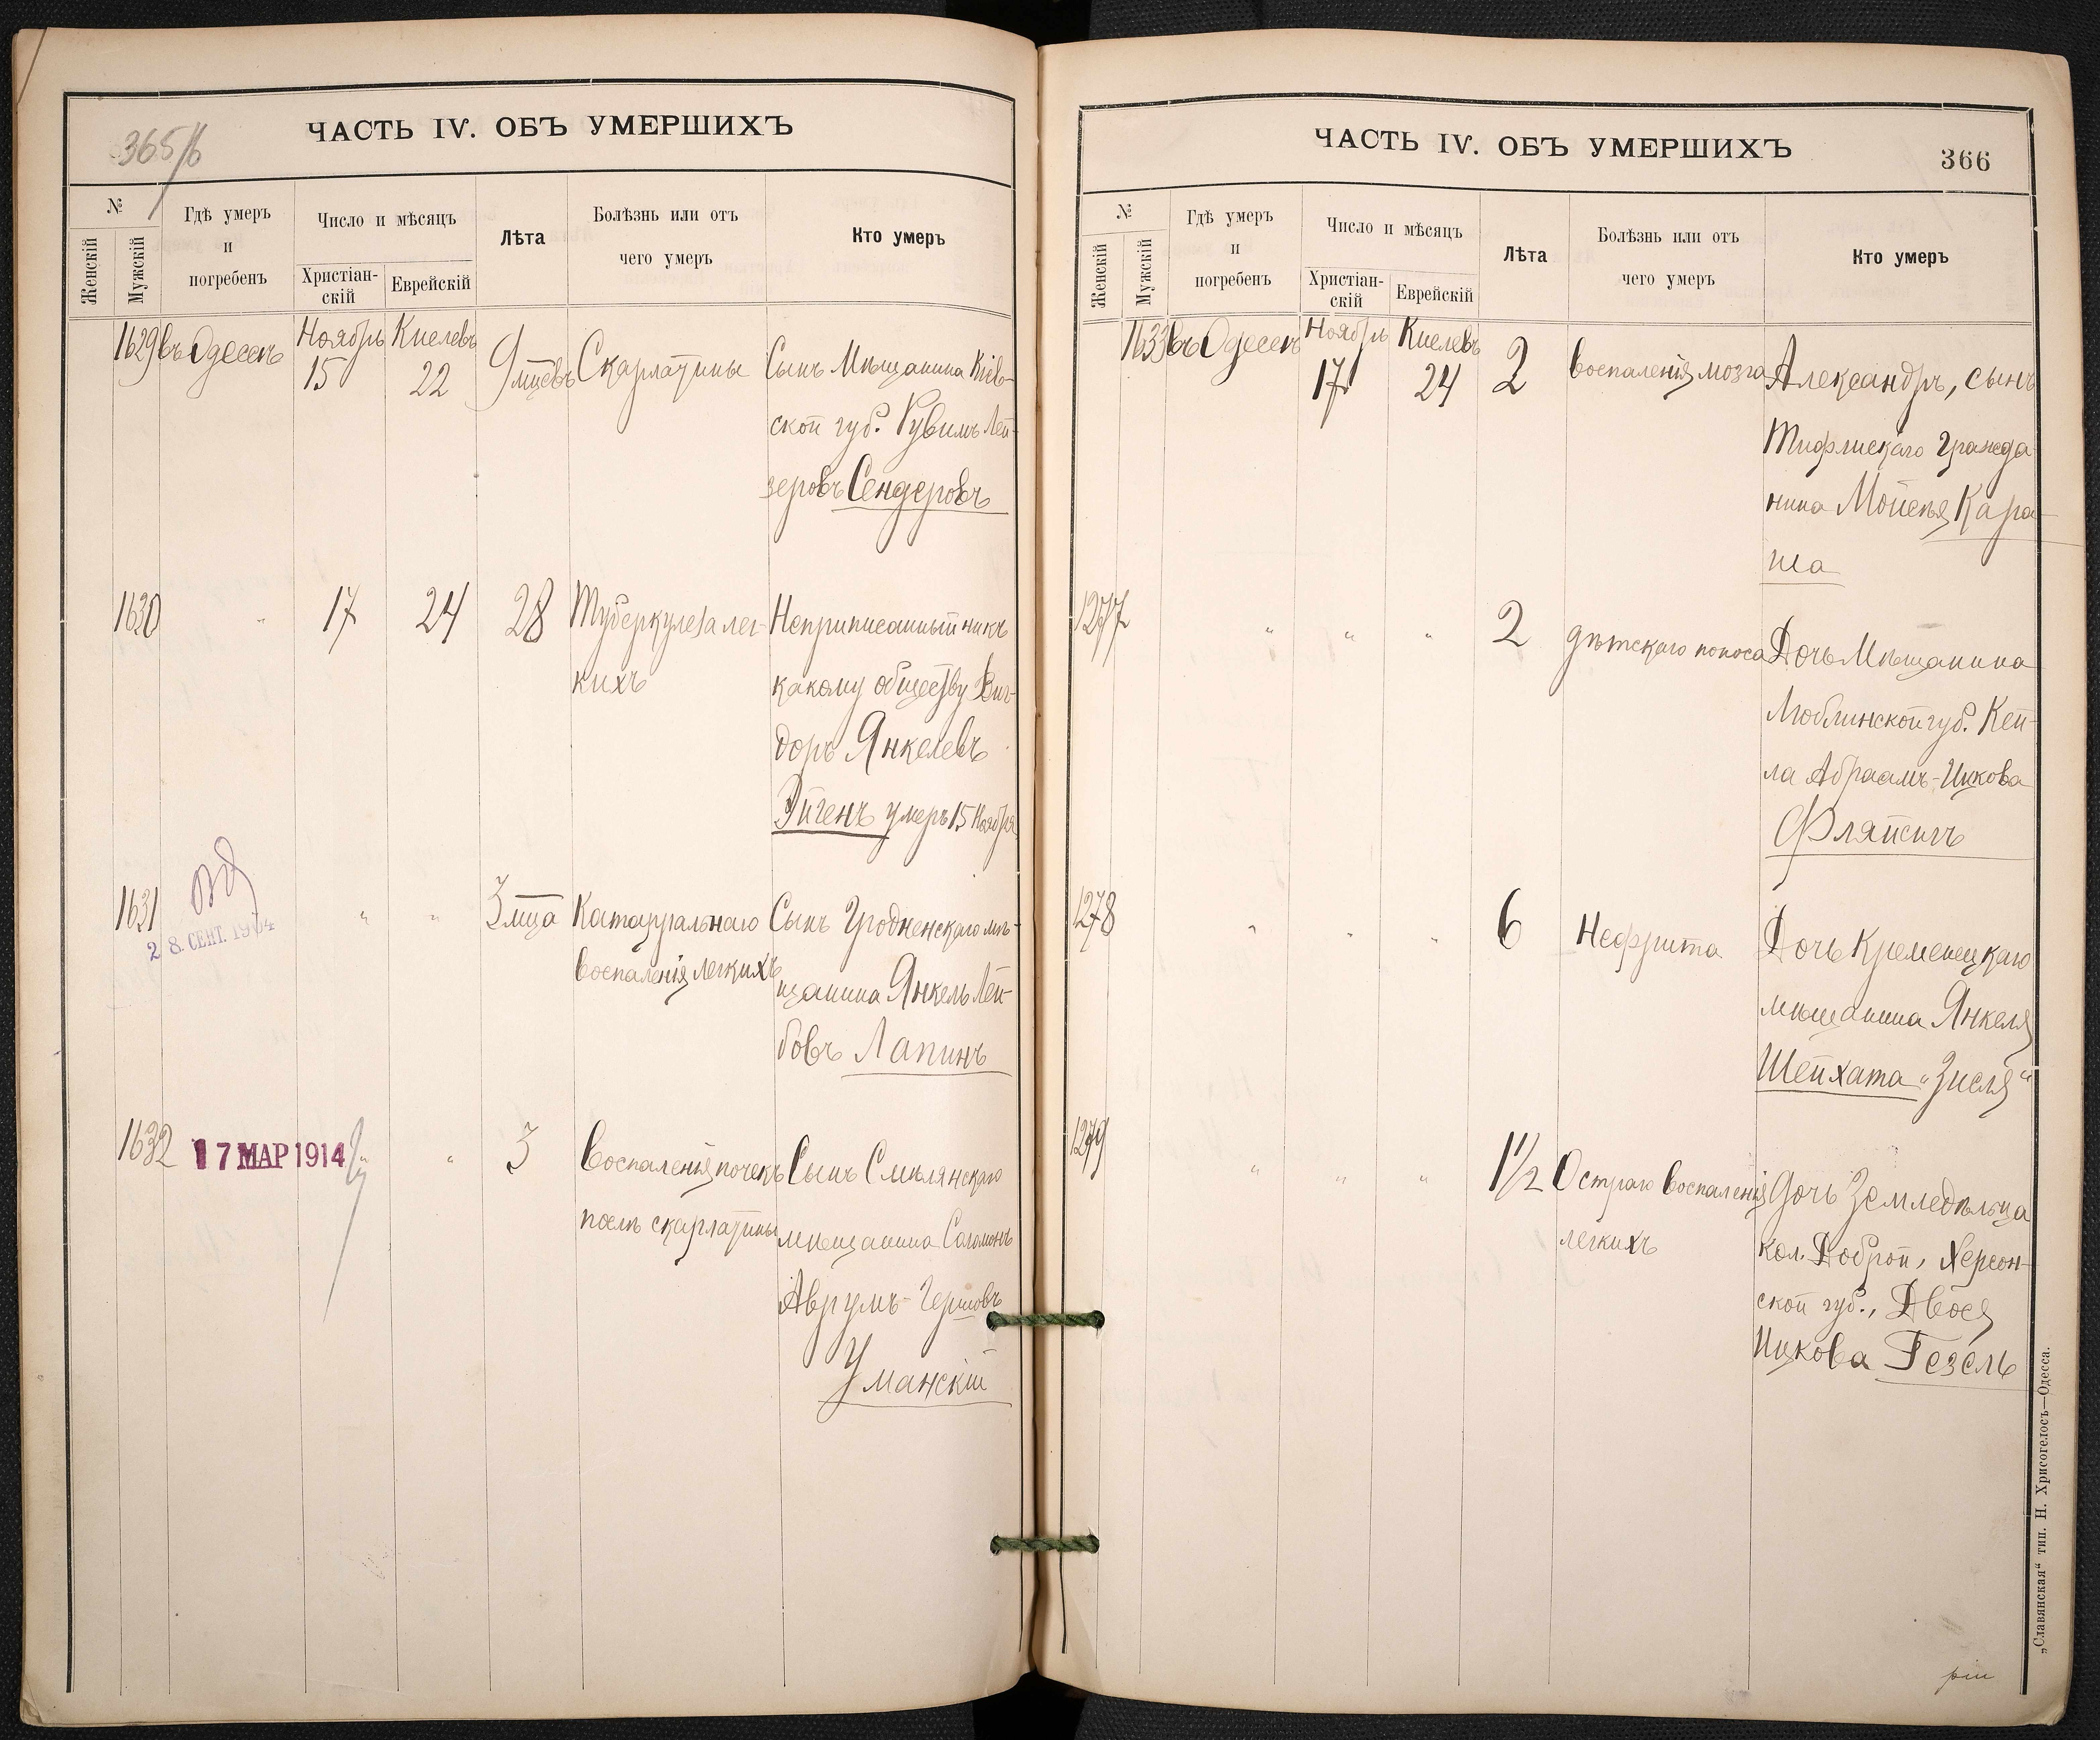 365/б
ЧАСТЬ IV. ОБЪ УМЕРШИХЪ
№
Женскій
Мужскій
Гдѣ умеръ
и
погребенъ
Число и мѣсяцъ
Христіан-
скій
Еврейскій
Лѣта
Болѣзнь или отъ
чего умеръ
Кто умеръ
1629 въ Одессѣ Ноябрь 15 Кислевъ 22 9 мцевъ Скарлатины Сынъ Мѣщанина Кіев-
ской губ. Рувимъ Лей-
зеровъ Сендеровъ
1630 " 17 24 28 Туберкулеза лег- Неприписанный ник
какому обществу Виг-
кихъ
доръ Янкелевъ
Эйгенъ умеръ 15 Ноября
1631 " " 3 мца Катарральнаго Сынъ Гродненскаго мѣ-
28. СЕНТ. 1904
воспаленія легкихъ щанина Янкель Лей-
бовъ Лапинъ
1632 17 МАР 1914 " " 3 Воспаленія почекъ Сынъ Смѣлянскаго
послѣ скарлатины мѣщанина Соломонъ
Аврумъ-Гершовъ
Уманскій
ЧАСТЬ IV. ОБЪ УМЕРШИХЪ
366
№
Женскій
Мужскій
Гдѣ умеръ
и
погребенъ
Число и мѣсяцъ
Христіан-
скій
Еврейскій
Лѣта
Болѣзнь или отъ
чего умеръ
Кто умеръ
1633 въ Одессѣ Ноябрь 17 Кислевъ 24 2 воспаленія мозга Александръ, сынъ
Тифлисскаго Гражда
нина Мойсея Кара-
1277 " " " 2 дѣтскаго поноса Дочь Мѣщанина
Люблинской губ. Кей-
ла Абраамъ-Ицкова
1278 " " " 6 Нефрита Дочь Кременецкаго
мѣщанина Янкеля
Шейхата "Зисля"
1279 " " " 1½ Остраго воспаленія Дочь Земледѣльца
легкихъ кол. Доброй, Херсон-
ской губ., Двося
Ицкова Гезель
„Славянская“ тип. Н. Хрисогелосъ—Одесса.